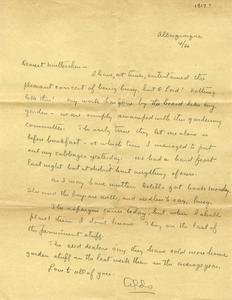 1917?
Albuquerque
4/20
Dearest Mutterchen -
I have, at times, entertained the
pleasant conceit of being busy, but O Lord! Nothing
like this! My work has gone by the board like my
garden - we are simply swamped with this gardening
committee. The early time they let me alone is
before breakfast - at which time I managed to put
out my cabbages yesterday. We had a hard frost
last night but it didnt hurt anything of ours.
and may have written Estella got back Monday
She and the boy are well, and needless to say, busy.
The asparagus came today, but when I shall
plant them I don't know. They are the last of
the permanent stuff.
The seed dealers say they have sold more
garden stuff in the last week than in the average year.
Love to all of you.
Aldo